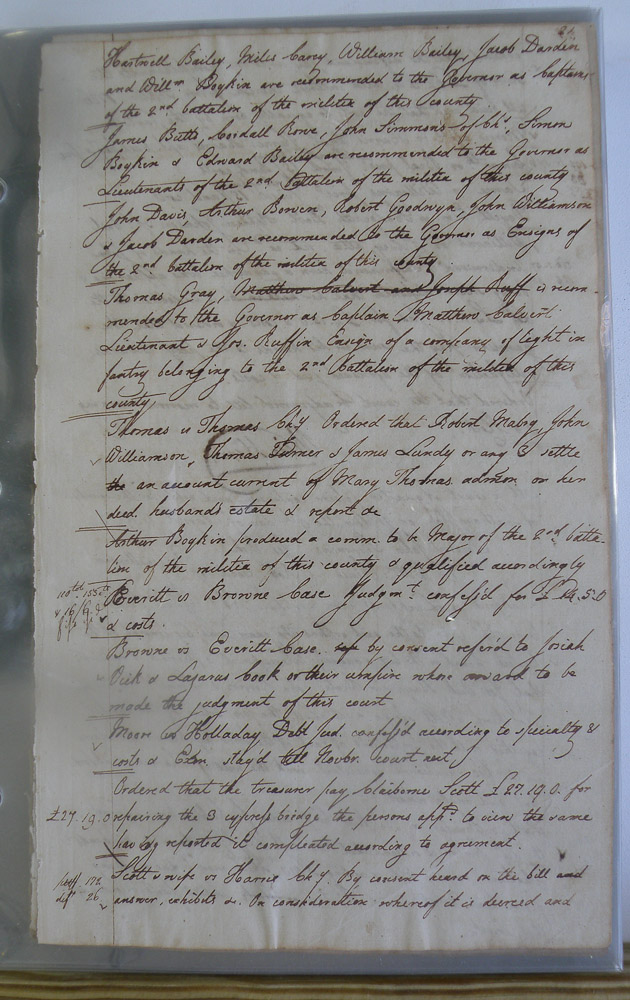 Hartwell Bailey, Miles Cary, William Bailey, Jacob Darden
and Willm Boykin are recommended to the Governor as Captains
of the 2nd battalion of the militia of this county
James Butts, Cordall Rowe, John Simmons of Chs, Simon
Boykin & Edward Bailey are recommended to the Governor as
Lieutenants of the 2nd battalion of the militia of this county
John Davis, Arthur Bowen, Robert Goodwyn, John Williamson
& Jacob Darden are recommended to the Governor as Ensigns of
the 2nd battalion of the militia of this county
Thomas Gray, Matthew Calvert and Joseph Ruff is recom-
mended to the Governor as Captain Matthew Calvert
Lieutenant & Jos. Ruffin Ensign of a company of light in
fantry belonging to the 2nd battalion of the militia of this
county
Thomas vs Thomas Chy Ordered that Robert Mabry, John
Williamson, Thomas Turner & James Lundy or any 3 settle
the an account current of Mary Thomas admon. on her
decd. husbands estate & report &c
Arthur Boykin produced a comm. to be Major of the 2nd batta-
lion of the militia of this county & qualified accordingly
Everitt vs Browne Case Judgmt. confess'd for £ 5.0
& costs.
Browne vs Everitt Case. by consent refer'd to Josiah
Vick & Lazarus Cook or their umpire whose award to be
made the judgment of this court
Moore vs Holladay Debt Jud. confess'd according to specialty &
costs & Exon. stay'd till Novbr. court next
Ordered that the treasurer pay Claiborne Scott £27.19.0. for
£27.19.0 repairing the 3 cypress bridge the persons appd. to view the same
having reported it compleated according to agreement.
Scott & wife vs Harris Chy. By consent heard on the bill and
answer, exhibits &c. On consideration whereof it is decreed and